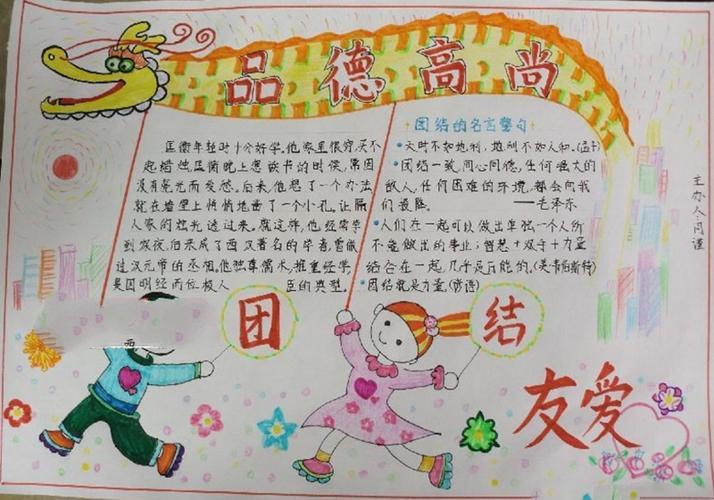 品德高尚
匡衡年轻时十分好学。他家里很穷买不
起蜡烛,匡衡晚上想读书的时候,常因
没有亮光而发愁。后来,他想了一个办法
就在墙壁上悄悄地凿了一个小孔,让隔
人家的烛光透过来。就这样,他经常学
到深夜,后来成了西汉著名的学者,曾做
过汉元帝的丞相。他独尊儒术,推重经学
是因明经而位极人 臣的典型。
团结的名言警句
天时不如地利,地利不如人和。(孟子)
团结一致,同心同德,任何强大的
敌人,任何困难的环境,都会向我
们投降。 ——毛泽东
人们在一起可以做出单独一个人所
不能做出的事业;智慧+双手+力量
结合在一起,几乎是万能的。(美 韦伯斯特)
团结就是力量。(谚语)
主办人:闫谨
团结
友爱